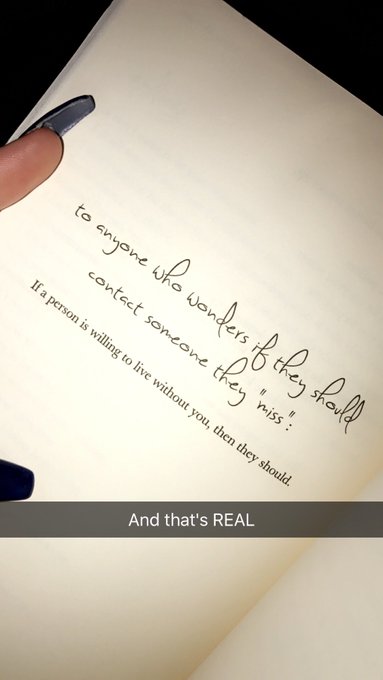 to anyone who wonders if they should
contact someone they "miss":
If a person is willing to live without you, then they should.
And that's REAL